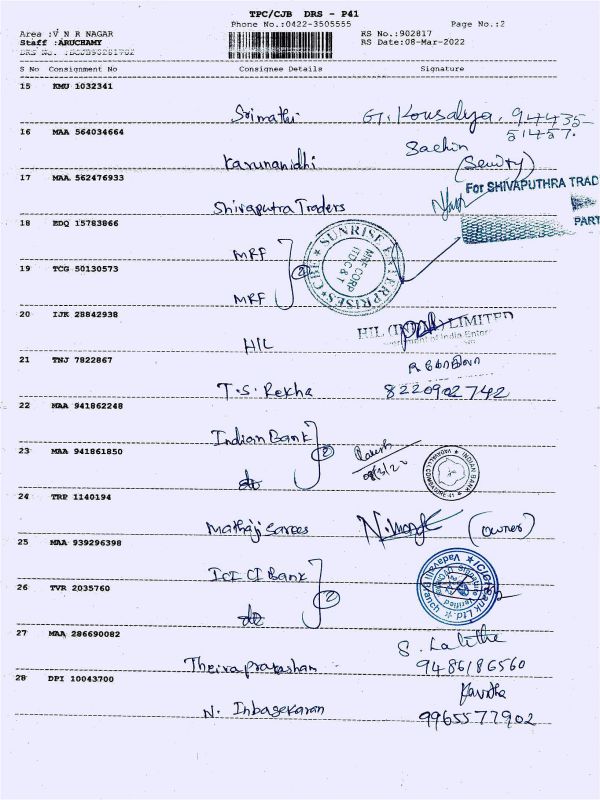 TPC/CJB DRS - P41
Phone No.:0422-3505555 Page No.:2
Area :V N R NAGAR RS No.:902817
Staff :ARUCHAMY RS Date:08-Mar-2022
DRS No. :BCJB90281702
S No Consignment No Consignee Details Signature
15 KMU 1032341
Srimathi G. Kousalya. 94435-
51457.
16 MAA 564034664
Karunanidhi Sachin
(Seurity)
17 MAA 562476933
Shivaputra Traders For SHIVAPUTHRA TRAD
PART
18 EDQ 15783866
MRF 2 SUNRISE ENTERPRISES CBE
MRF CORP
ITDC & T
19 TCG 50130573
MRF
20 IJK 28842938
HIL HIL (INDIA) LIMITED
ernment of India Enter
21 TNJ 7822867
T.S. Rekha 8220902742
22 MAA 941862248
Indian Bank 2 Rakesh
08/3/22
23 MAA 941861850
do INDIAN BANK
VADAVALLI, COIMBATORE-41
24 TRP 1140194
Mathaji Sarees (owner)
25 MAA 939296398
ICICI Bank 2 ICICI Bank Ltd
Vadavalli Branch
Signature Verified
26 TVR 2035760
do
27 MAA 286690082
Theivaprakashan S. Lalitha
9486186560
28 DPI 10043700
N. Inbasekaran Kavitha
9965577902